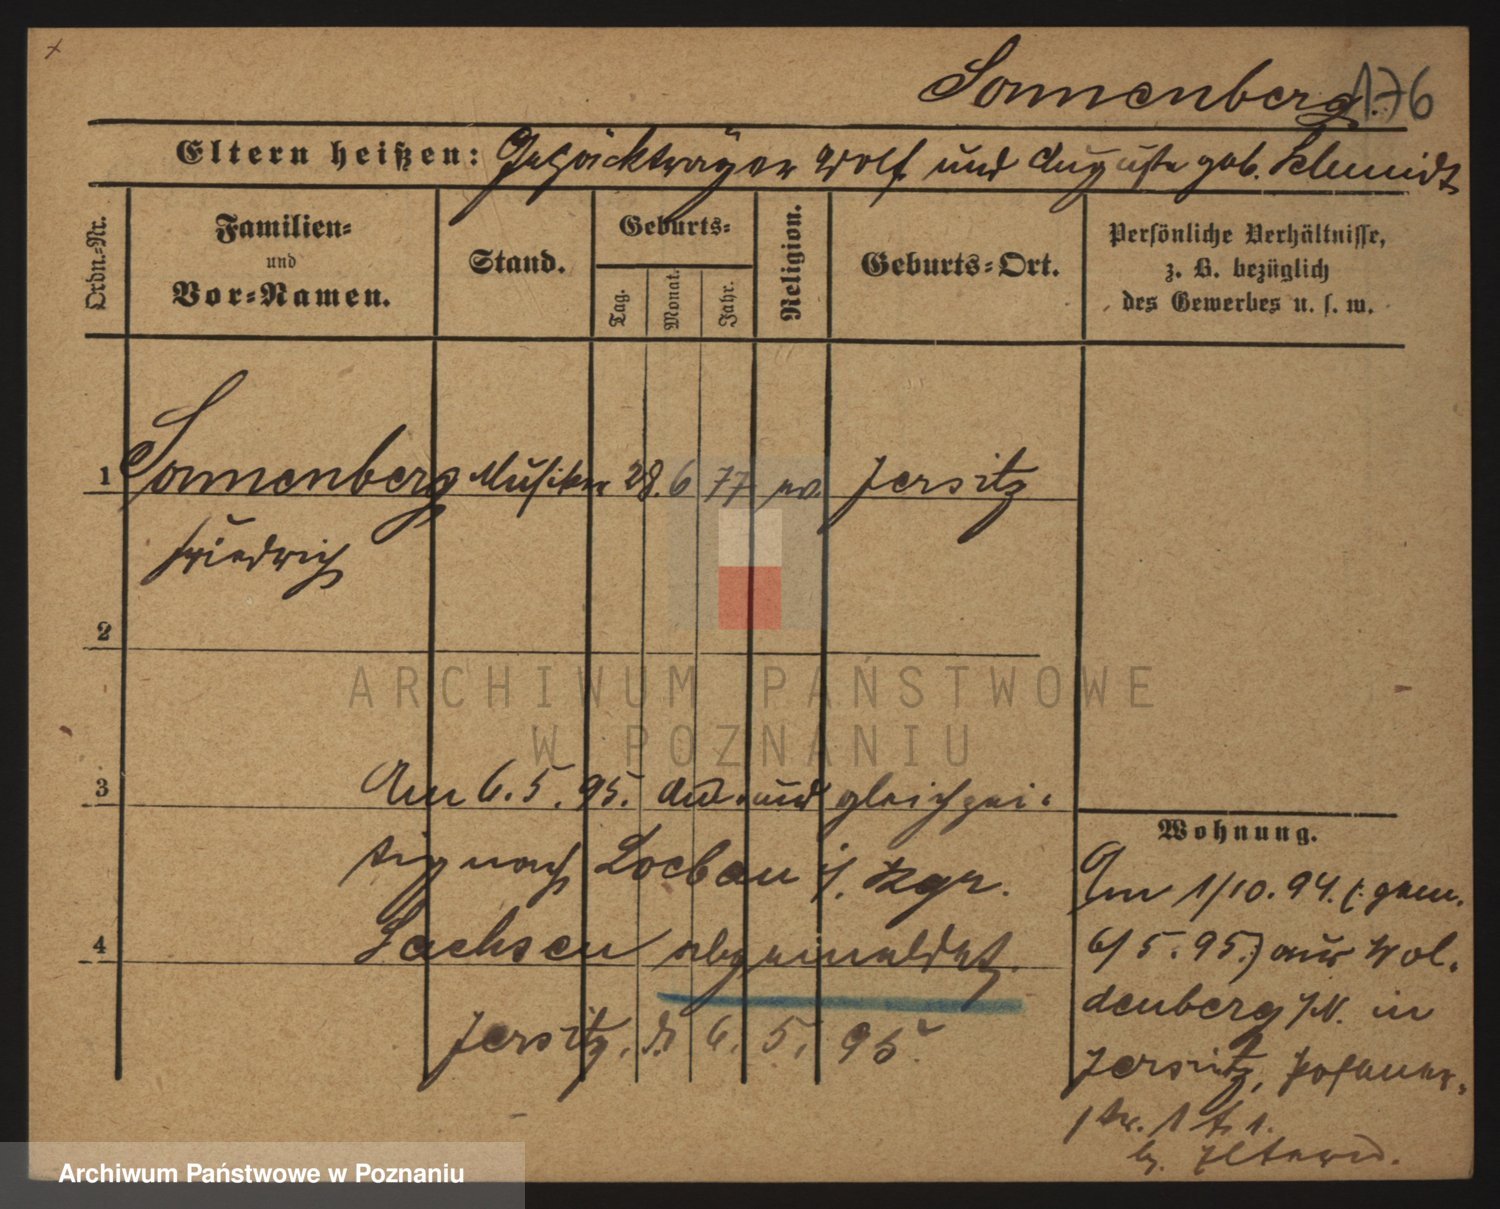 Sonnenberg. 176
Eltern heißen: Gepäckträger Wolf und Auguste geb. Schmidt
Ordn.-Nr.
Familien-
und
Vor-Namen.
Stand.
Geburts-
Tag.
Monat.
Jahr.
Religion.
Geburts-Ort.
Persönliche Verhältnisse,
z. B. bezüglich
des Gewerbes u. s. w.
1 Sonnenberg Musiker 28. 6 77 ev. Jersitz
Friedrich
2
ARCHIWUM PAŃSTWOWE
W POZNANIU
3 Am 6.5.95. an- und gleichzei-
tig nach Loebau i/. Kgr.
4 Sachsen abgemeldet.
Jersitz, d. 6. 5. 95.
Wohnung.
Am 1/10. 94. (: gem.
6/5. 95:) aus Wol-
denberg /N. in
Jersitz, Posener-
str. 1
b. Eltern.
Archiwum Państwowe w Poznaniu